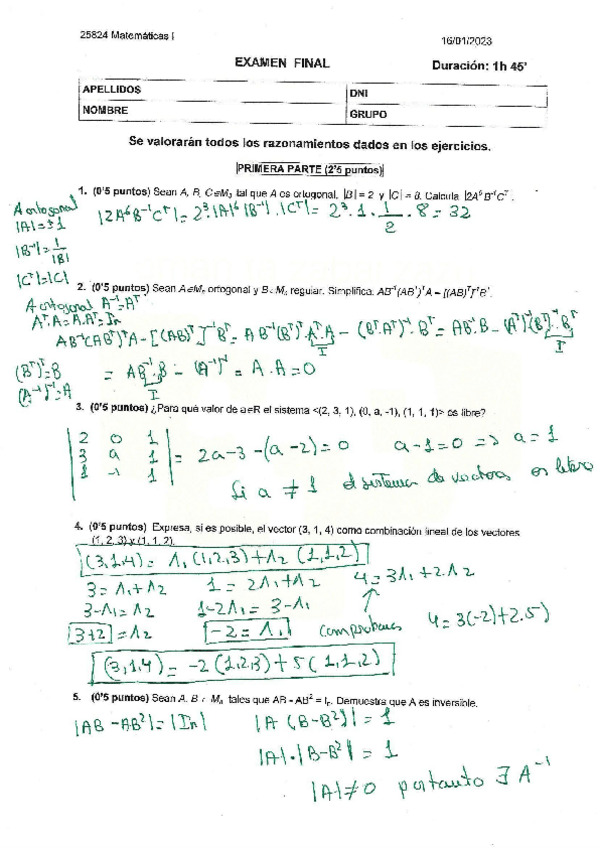 25824 Matemáticas I
16/01/2023
EXAMEN FINAL
Duración: 1h 45'
APELLIDOS
DNI
NOMBRE
GRUPO
Se valorarán todos los razonamientos dados en los ejercicios.
PRIMERA PARTE (2'5 puntos)
1. (0'5 puntos) Sean A, B, C∈M₃ tal que A es ortogonal, |B| = 2 y |C| = 8. Calcula |2A⁶B⁻¹Cᵀ|.
A ortogonal
|A|=±1
|B⁻¹|=1/|B|
|Cᵀ|=|C|
|2A⁶B⁻¹Cᵀ|= 2³·|A|⁶·|B⁻¹|·|Cᵀ|= 2³·1·1/2·8 = 32
2. (0'5 puntos) Sean A∈Mₙ ortogonal y B∈Mₙ regular. Simplifica: AB⁻¹(ABᵀ)ᵀA – [(AB)ᵀ]⁻¹Bᵀ.
A ortogonal A⁻¹=Aᵀ
AᵀA=A.Aᵀ=In
AB⁻¹(ABᵀ)ᵀA-[(AB)ᵀ]⁻¹Bᵀ= AB⁻¹(Bᵀ)ᵀ.AᵀA - (Bᵀ.Aᵀ)⁻¹.Bᵀ= AB⁻¹.B-(Aᵀ)⁻¹(Bᵀ)⁻¹.Bᵀ
I
I
(Bᵀ)ᵀ=B
(A⁻¹)⁻¹=A
= AB⁻¹.B - (A⁻¹)⁻¹ = A - A = 0
I
3. (0'5 puntos) ¿Para qué valor de a∈R el sistema <(2, 3, 1), (0, a, -1), (1, 1, 1)> es libre?
2 0 1
3 a 1
1 -1 1
= 2a-3-(a-2)=0 a-1=0 => a=1
Si a ≠ 1 el sistema de vectores es libre
4. (0'5 puntos) Expresa, si es posible, el vector (3, 1, 4) como combinación lineal de los vectores
(1, 2, 3) y (1, 1, 2).
(3,1,4) = λ₁ (1,2,3)+λ₂ (1,1,2)
3=λ₁+λ₂ 1=2λ₁+λ₂ 4=3λ₁+2λ₂
3-λ₁=λ₂ 1-2λ₁= 3-λ₁
3+2=λ₂ -2=λ₁ comprobamos 4=3(-2)+2.5)
(3,1,4) = -2(1,2,3)+5(1,1,2)
5. (0'5 puntos) Sean A, B ∈ Mₙ tales que AB - AB² = Iₙ. Demuestra que A es inversible.
|AB-AB²|=|In| |A (B-B²)| = 1
|A|·|B-B²| = 1
|A|≠0 por tanto ∃ A⁻¹